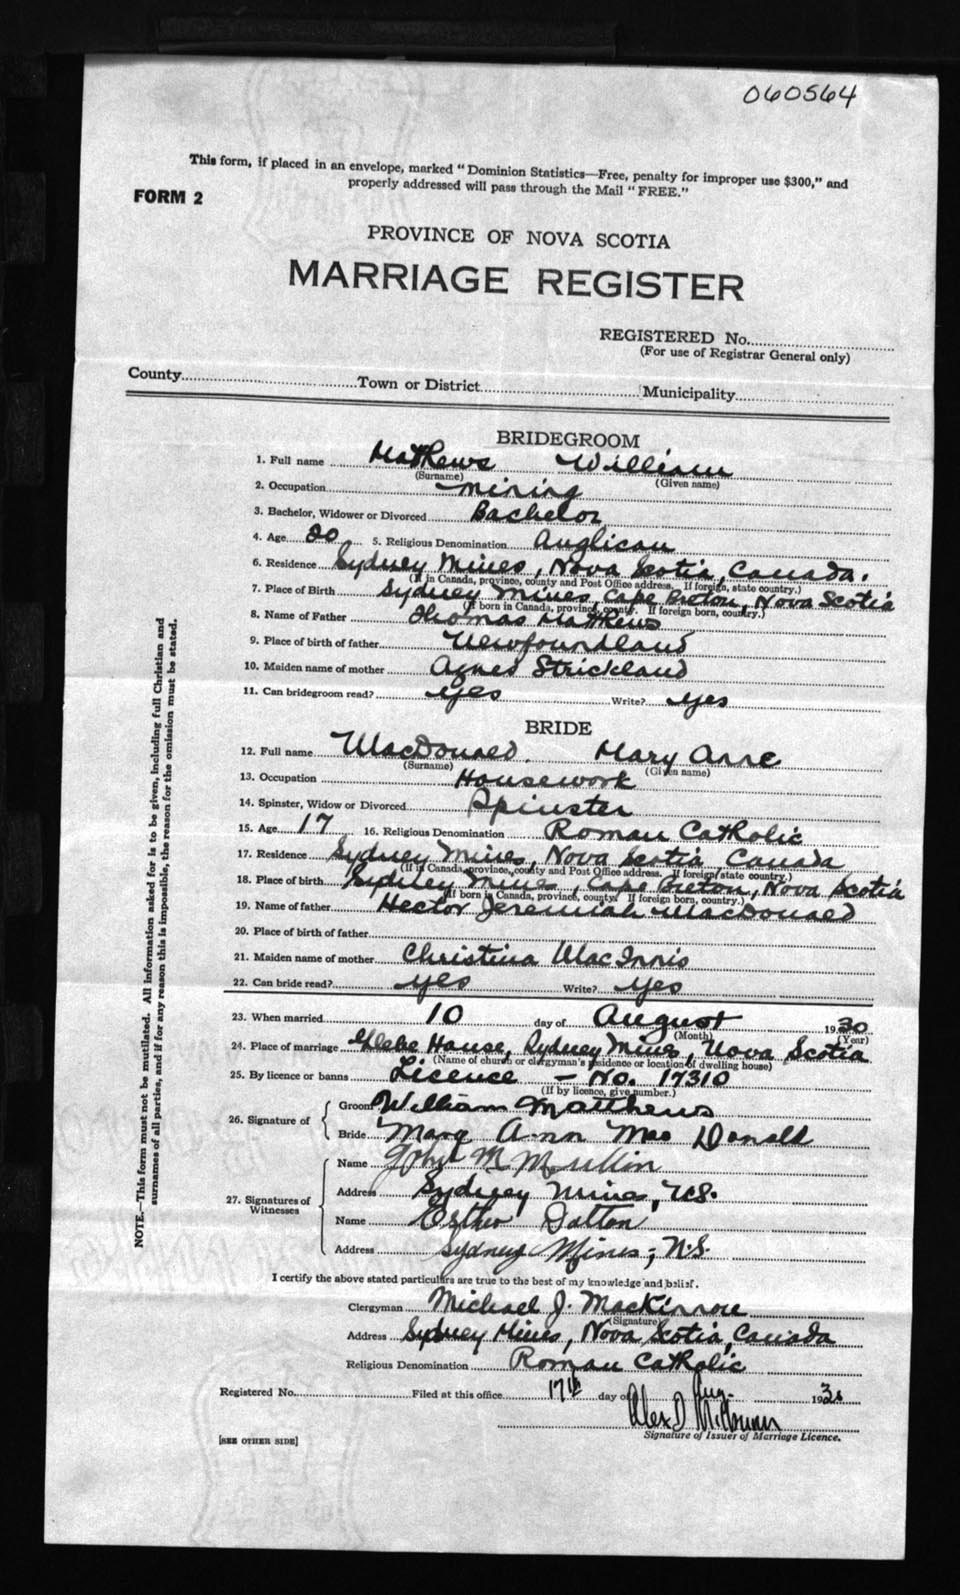 060564
This form, if placed in an envelope, marked "Dominion Statistics—Free, penalty for improper use $300," and
properly addressed will pass through the Mail "FREE."
FORM 2
PROVINCE OF NOVA SCOTIA
MARRIAGE REGISTER
REGISTERED No.
(For use of Registrar General only)
County Town or District Municipality
BRIDEGROOM
1. Full name Matthews William
(Surname) (Given name)
2. Occupation mining
3. Bachelor, Widower or Divorced Bachelor
4. Age 20 5. Religious Denomination Anglican
6. Residence Sydney Mines, Nova Scotia, Canada.
(If in Canada, province, county and Post Office address. If foreign, state country.)
7. Place of Birth Sydney Mines, Cape Breton, Nova Scotia
(If born in Canada, province, county. If foreign born, country.)
8. Name of Father Thomas Matthews
9. Place of birth of father Newfoundland
10. Maiden name of mother Agnes Strickland
11. Can bridegroom read? yes Write? yes
BRIDE
12. Full name MacDonald. Mary Anne
(Surname) (Given name)
13. Occupation Housework
14. Spinster, Widow or Divorced Spinster
15. Age 17 16. Religious Denomination Roman Catholic
17. Residence Sydney Mines, Nova Scotia Canada
(If in Canada, province, county and Post Office address. If foreign, state country.)
18. Place of birth Sydney Mines, Cape Breton, Nova Scotia
(If born in Canada, province, county. If foreign born, country.)
19. Name of father Hector Jeremiah MacDonald
20. Place of birth of father
21. Maiden name of mother Christina MacInnis
22. Can bride read? yes Write? yes
23. When married 10 day of August 1930
(Month) (Year)
24. Place of marriage Glebe House, Sydney Mines, Nova Scotia
(Name of church or clergyman's residence or location of dwelling house)
25. By licence or banns Licence - No. 17310
(If by licence, give number.)
26. Signature of Groom William Matthews
Bride Mary Ann Mac Donald
27. Signatures of Witnesses
Name M. Mullin
Address Sydney Mines, N.S.
Name Esther Dalton
Address Sydney Mines, N.S.
I certify the above stated particulars are true to the best of my knowledge and belief.
Clergyman Michael J. MacKinnon
(Signature)
Address Sydney Mines, Nova Scotia, Canada
Religious Denomination Roman Catholic
Registered No. Filed at this office 17th day of Aug. 1930
Alex D
Signature of Issuer of Marriage Licence.
[SEE OTHER SIDE]
NOTE.—This form must not be mutilated. All information asked for is to be given, including full Christian and
surnames of all parties, and if for any reason this is impossible, the reason for the omission must be stated.